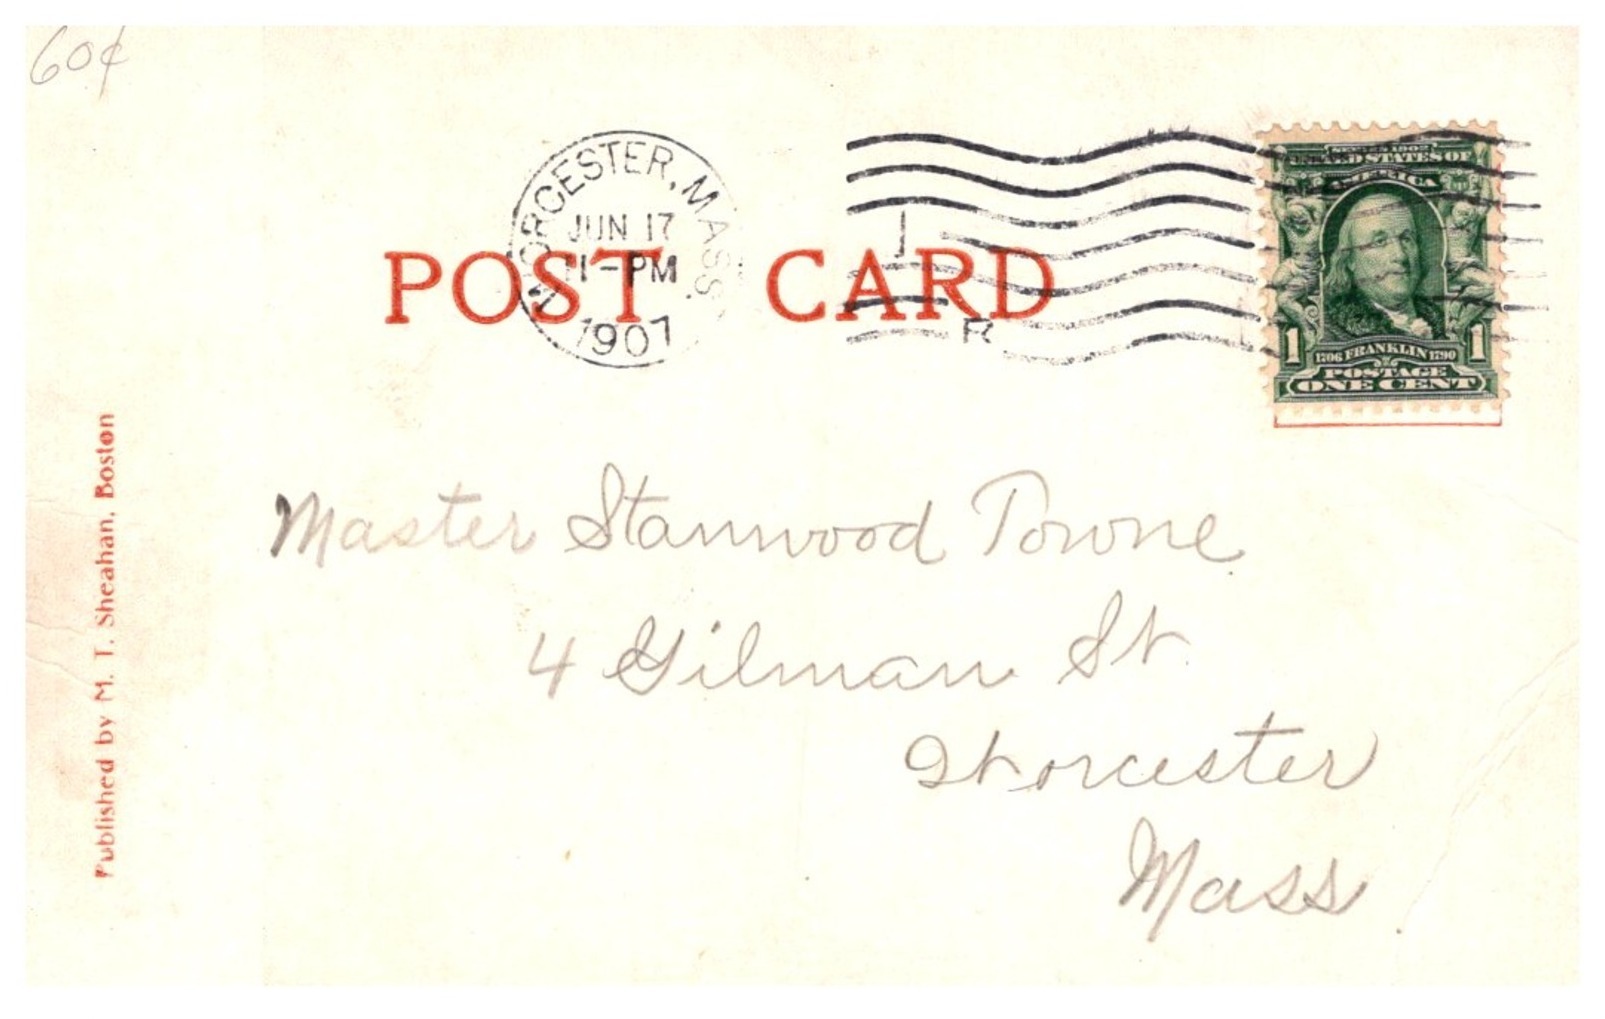 60¢
WORCESTER, MASS.
JUN 17
11-PM
1907
1
R
POST CARD
SERIES 1902
UNITED STATES OF
AMERICA
1 1
1706 FRANKLIN 1790
POSTAGE
ONE CENT
Published by M. T. Sheahan, Boston
Master Stanwood Towne
4 Gilman St.
Worcester
Mass